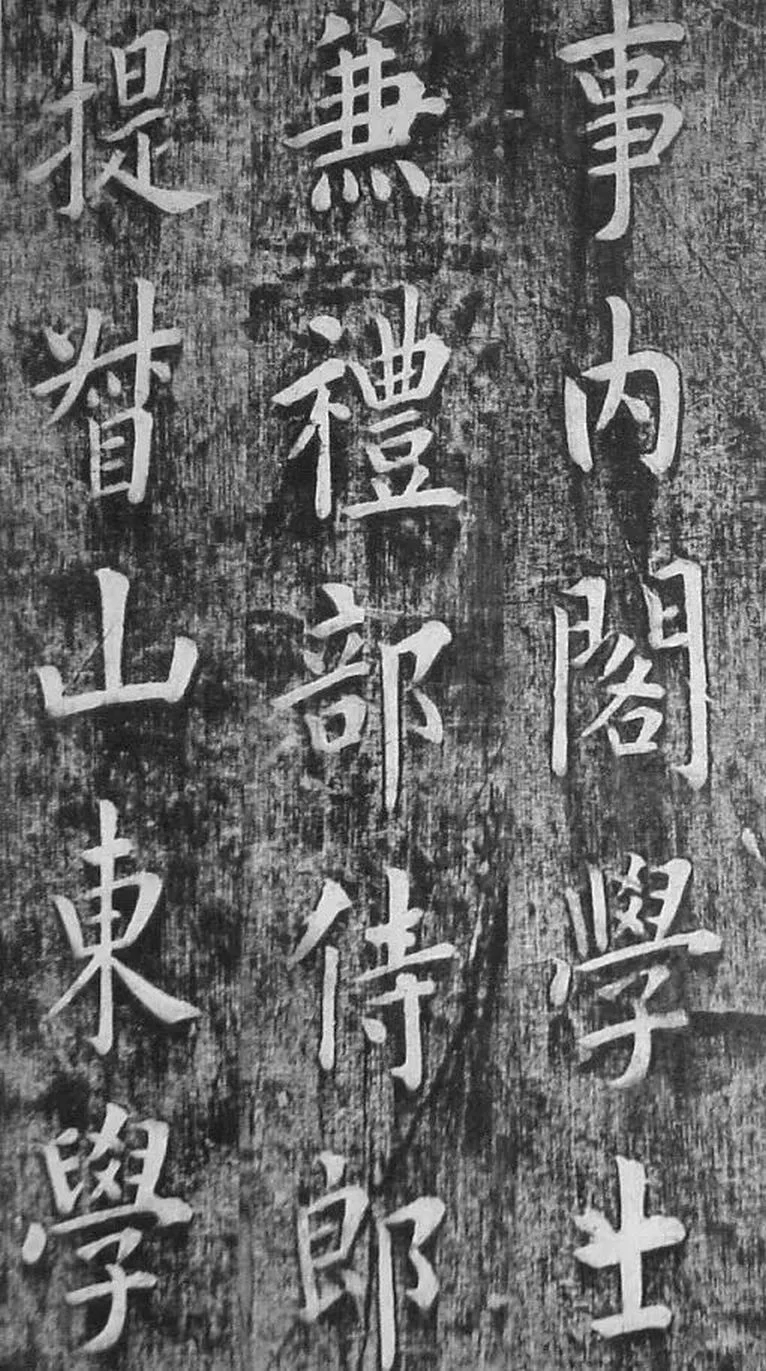 事内閣學士
兼禮部侍郎
提督山東學